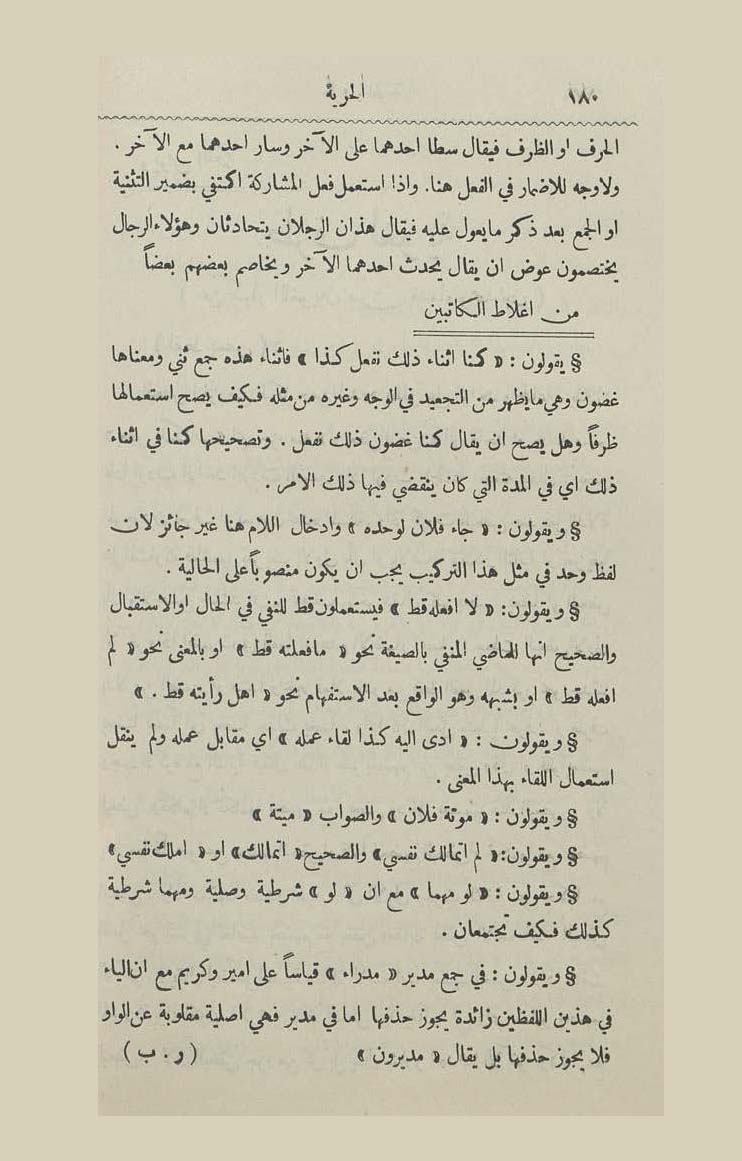 ١٨٠ الحرية
الحرف او الظرف فيقال سطا احدهما على الآخر وسار احدهما مع الآخر .
ولاوجه للاضمار في الفعل هنا. واذا استعمل فعل المشاركة اكتفي بضمير التثنية
او الجمع بعد ذكر مايعول عليه فيقال هذان الرجلان يتحادثان وهؤلاء الرجال
يختصمون عوض ان يقال يحدث احدهما الآخر ويخاصم بعضهم بعضاً
من اغلاط الكاتبين
§ يقولون : « كنا اثناء ذلك نفعل كذا » فاثناء هذه جمع ثني ومعناها
غضون وهي مايظهر من التجعيد في الوجه وغيره من مثله فكيف يصح استعمالها
ظرفاً وهل يصح ان يقال كنا غضون ذلك نفعل . وتصحيحها كنا في اثناء
ذلك اي في المدة التي كان ينقضي فيها ذلك الامر .
§ ويقولون : « جاء فلان لوحده » وادخال اللام هنا غير جائز لان
لفظ وحد في مثل هذا التركيب يجب ان يكون منصوباً على الحالية .
§ ويقولون: « لا افعله قط » فيستعملون قط للنفي في الحال اوالاستقبال
والصحيح انها للماضي المنفي بالصيغة نحو « مافعلته قط » او بالمعنى نحو « لم
افعله قط » او بشبهه وهو الواقع بعد الاستفهام نحو « اهل رأيته قط . »
§ ويقولون : « ادى اليه كذا لقاء عمله » اي مقابل عمله ولم ينقل
استعمال اللقاء بهذا المعنى .
§ ويقولون : « موتة فلان » والصواب « ميتة »
§ ويقولون: « لم اتمالك نفسي » والصحيح « اتمالك » او « املك نفسي »
§ ويقولون : « لو مهما » مع ان « لو » شرطية وصلية ومهما شرطية
كذلك فكيف تجتمعان .
§ ويقولون : في جمع مدير « مدراء » قياساً على امير وكريم مع ان الياء
في هذين اللفظين زائدة يجوز حذفها اما في مدير فهي اصلية مقلوبة عن الواو
فلا يجوز حذفها بل يقال « مديرون » ( ر . ب )